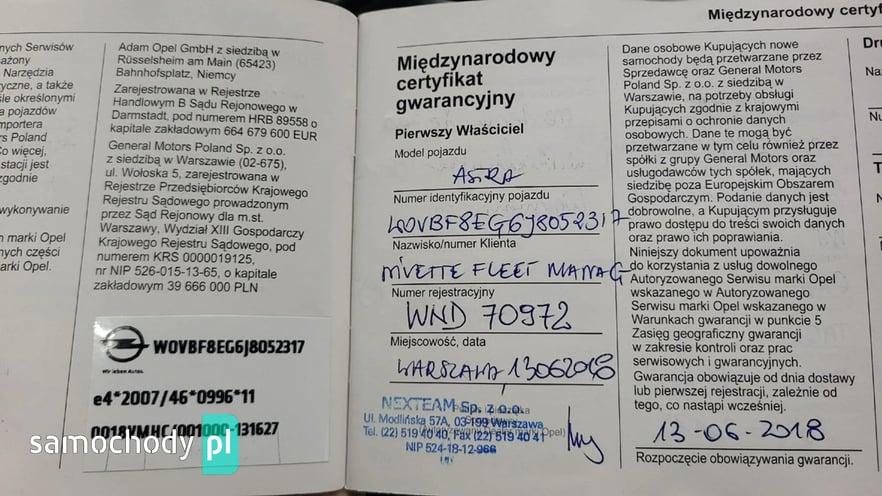 Międzynarodowy certyf
nych Serwisów
ażony
Narzędzia
yczne, a także
śle określonymi
a pojazdów
mportera
rs Poland
Co więcej,
stacji jest
zgodnie
wykonywanie
m marki Opel
nych części
arki Opel.
Adam Opel GmbH z siedzibą w
Rüsselsheim am Main (65423)
Bahnhofsplatz, Niemcy
Zarejestrowana w Rejestrze
Handlowym B Sądu Rejonowego w
Darmstadt, pod numerem HRB 89558 o
kapitale zakładowym 664 679 600 EUR
General Motors Poland Sp. z o.o.
z siedzibą w Warszawie (02-675),
ul. Wołoska 5, zarejestrowana w
Rejestrze Przedsiębiorców Krajowego
Rejestru Sądowego prowadzonym
przez Sąd Rejonowy dla m.st.
Warszawy, Wydział XIII Gospodarczy
Krajowego Rejestru Sądowego, pod
numerem KRS 0000019125,
nr NIP 526-015-13-65, o kapitale
zakładowym 39 666 000 PLN
W0VBF8EG6J8052317
Wir leben Autos.
e4*2007/46*0996*11
0018YMHC/001000-131627
samochody pl
Międzynarodowy
certyfikat
gwarancyjny
Pierwszy Właściciel
Model pojazdu
ASTRA
Numer identyfikacyjny pojazdu
W0VBF8EG6J8052317
Nazwisko/numer Klienta
NIVETTE FLEET MANAG
Numer rejestracyjny
WND 70972
Miejscowość, data
WARSZAWA 13062018
NEXTEAM Sp. z o.o.
Ul. Modlińska 57A, 03-199 Warszawa
Tel. (22) 519 40 40, Fax (22) 519 40 41
NIP 524-18-12-966
Dane osobowe Kupujących nowe
samochody będą przetwarzane przez
Sprzedawcę oraz General Motors
Poland Sp. z o.o. z siedzibą w
Warszawie, na potrzeby obsługi
Kupujących zgodnie z krajowymi
przepisami o ochronie danych
osobowych. Dane te mogą być
przetwarzane w tym celu również przez
spółki z grupy General Motors oraz
usługodawców tych spółek, mających
siedzibę poza Europejskim Obszarem
Gospodarczym. Podanie danych jest
dobrowolne, a Kupującym przysługuje
prawo dostępu do treści swoich danych
oraz prawo ich poprawiania.
Niniejszy dokument upoważnia
do korzystania z usług dowolnego
Autoryzowanego Serwisu marki Opel
wskazanego w Autoryzowanego
Serwisu marki Opel wskazanego w
Warunkach gwarancji w punkcie 5
Zasięg geograficzny gwarancji
w zakresie kontroli oraz prac
serwisowych i gwarancyjnych.
Gwarancja obowiązuje od dnia dostawy
lub pierwszej rejestracji, zależnie od
tego, co nastąpi wcześniej.
13-06-2018
Rozpoczęcie obowiązywania gwarancji.